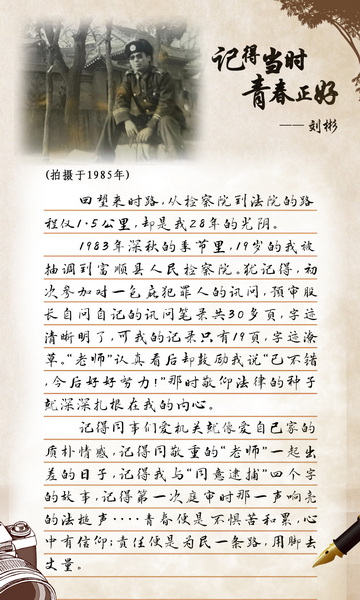 记得当时
青春正好
—— 刘彬
(拍摄于1985年)
回望来时路,从检察院到法院的路
程仅1·5公里,却是我28年的光阴。
1983年深秋的季节里,19岁的我被
抽调到富顺县人民检察院。犹记得,初
次参加对一包庇犯罪人的讯问,预审股
长自问自记的讯问笔录共30多页,字迹
清晰明了,可我的记录只有19页,字迹潦
草。“老师”认真看后却鼓励我说“已不错
,今后好好努力!”那时敬仰法律的种子
就深深扎根在我的内心。
记得同事们爱机关就像爱自己家的
质朴情感,记得同敬重的“老师”一起出
差的日子,记得我与“同意逮捕”四个字
的故事,记得第一次庭审时那一声响亮
的法槌声····青春便是不惧苦和累,心
中有信仰;责任便是为民一条路,用脚去
丈量。